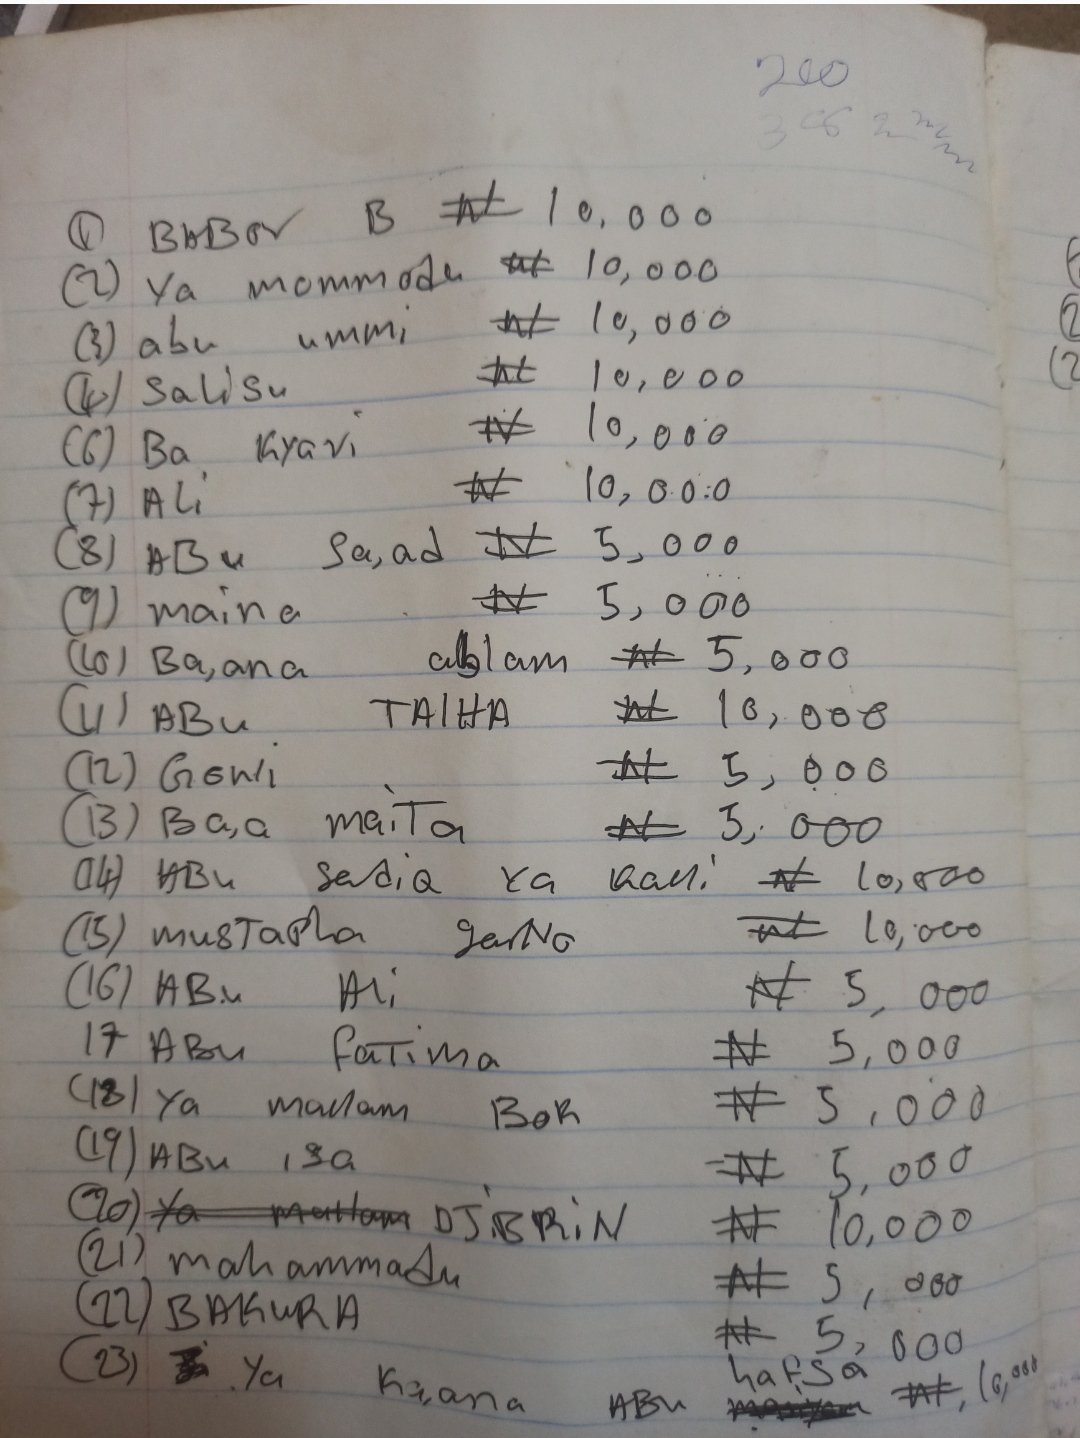 200
(1) BABOR B ₦ 10,000
(2) Ya mommodu ₦ 10,000
(3) abu ummi ₦ 10,000
(4) SaliSu ₦ 10,000
(6) Ba Kyari ₦ 10,000
(7) ALi ₦ 10,000
(8) ABu Sa,ad ₦ 5,000
(9) maina ₦ 5,000
(10) Ba,ana ₦ 5,000
(11) ABu TAlHA ₦ 10,000
(12) Goni ₦ 5,000
(13) Ba,a maiTa ₦ 5,000
(14) ABu Sadiq Ya ₦ 10,000
(15) musTaPha ₦ 10,000
(16) ABu Ali ₦ 5,000
17 ABu faTima ₦ 5,000
(18) Ya mallam BoR ₦ 5,000
(19) ABu isa ₦ 5,000
(20) Ya mallam DJiBRiN ₦ 10,000
(21) mahammadu ₦ 5,000
(22) BAKURA ₦ 5,000
(23) Ya Ka,ana ABu hafsa ₦, 10,000
(2